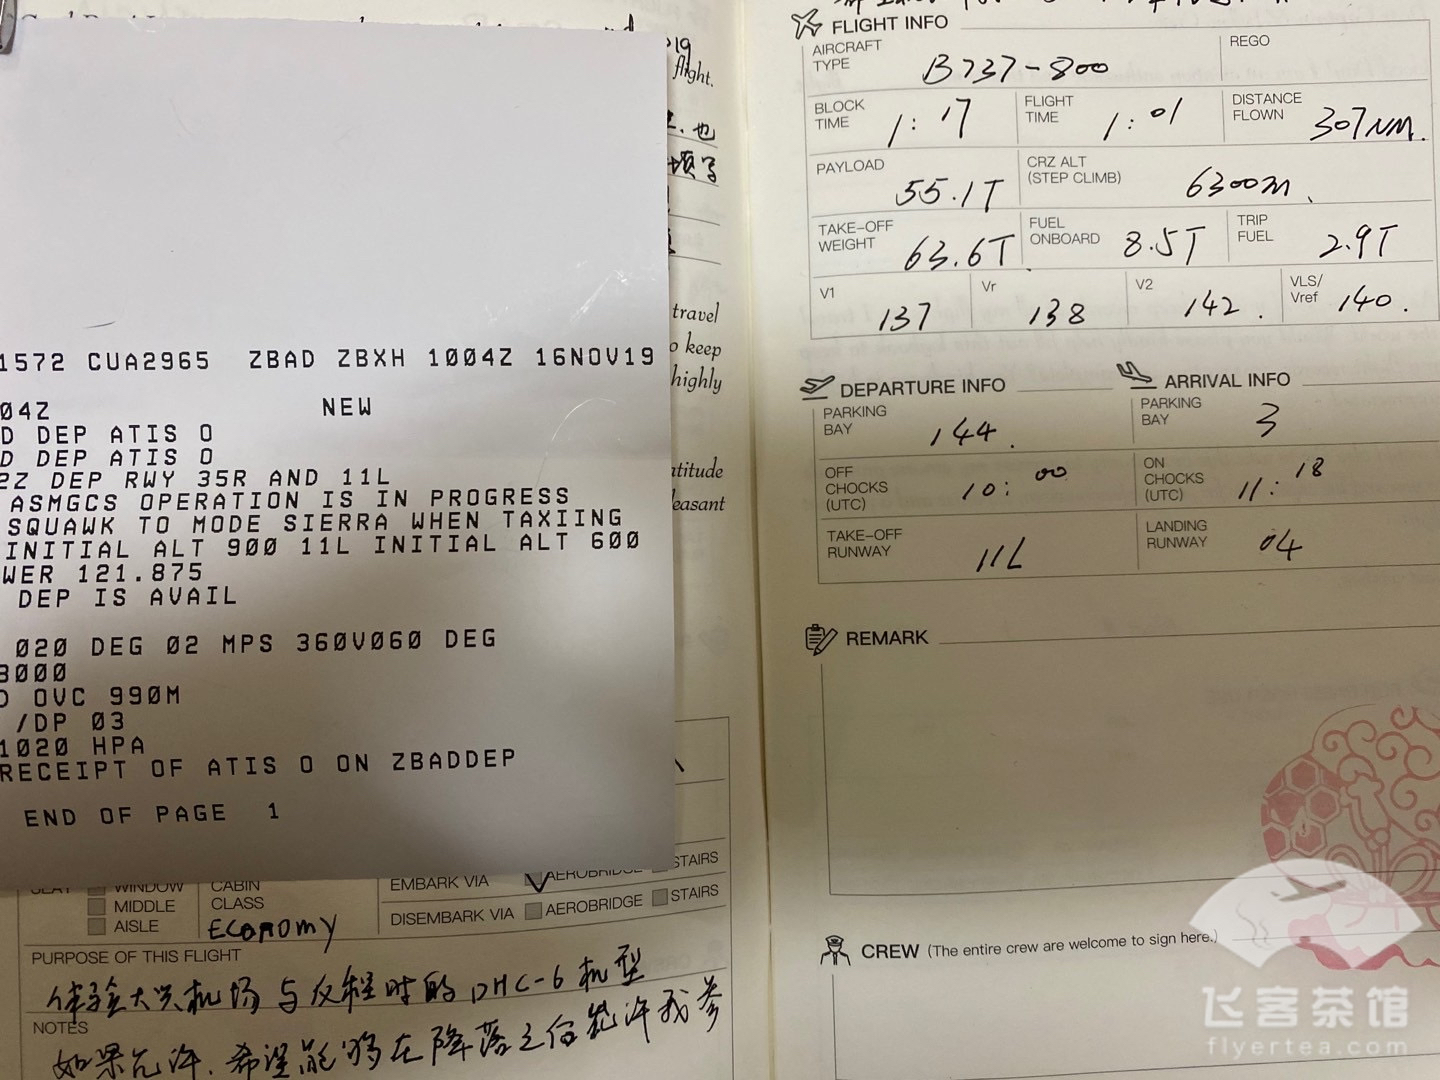 flight.
也
travel
o keep
highly
titude
leasant
1572 CUA2965 ZBAD ZBXH 1004Z 16NOV19
04Z NEW
D DEP ATIS O
D DEP ATIS O
2Z DEP RWY 35R AND 11L
ASMGCS OPERATION IS IN PROGRESS
SQUAWK TO MODE SIERRA WHEN TAXIING
INITIAL ALT 900 11L INITIAL ALT 600
WER 121.875
DEP IS AVAIL
020 DEG 02 MPS 360V060 DEG
8000
OVC 990M
/DP 03
1020 HPA
RECEIPT OF ATIS O ON ZBADDEP
END OF PAGE 1
WINDOW
MIDDLE
AISLE
CABIN CLASS
ECONOMY
EMBARK VIA AEROBRIDGE STAIRS
DISEMBARK VIA AEROBRIDGE STAIRS
PURPOSE OF THIS FLIGHT
体验大兴机场与反程时的DHC-6机型
NOTES
如果允许,希望能够在降落之后允许我参
FLIGHT INFO
AIRCRAFT TYPE B737-800 REGO
BLOCK TIME 1:17 FLIGHT TIME 1:01 DISTANCE FLOWN 307NM.
PAYLOAD 55.1T CRZ ALT (STEP CLIMB) 6300M.
TAKE-OFF WEIGHT 63.6T FUEL ONBOARD 8.5T TRIP FUEL 2.9T
V1 137 Vr 138 V2 142. VLS/Vref 140.
DEPARTURE INFO ARRIVAL INFO
PARKING BAY 144. PARKING BAY 3
OFF CHOCKS (UTC) 10:00 ON CHOCKS (UTC) 11:18
TAKE-OFF RUNWAY 11L LANDING RUNWAY 04
REMARK
CREW (The entire crew are welcome to sign here.)
飞客茶馆
flyertea.com